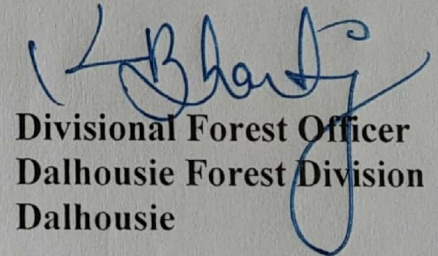 Divisional Forest Officer
Dalhousie Forest Division
Dalhousie